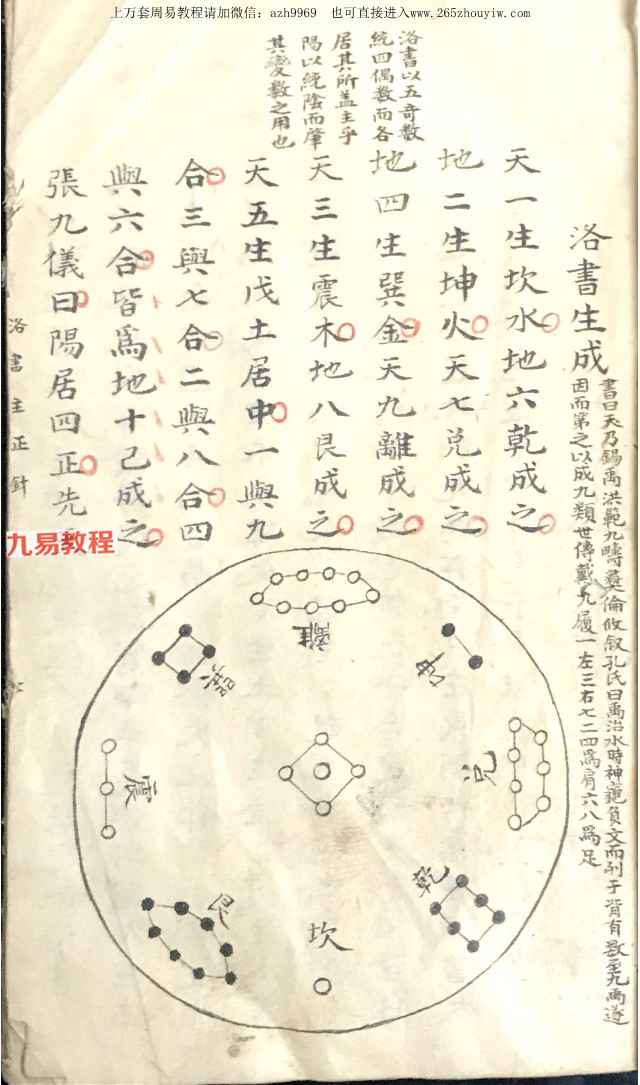 上万套周易教程请加微信：azh9969　也可直接进入www.265zhouyiw.com
洛書生成
書曰天乃錫禹洪範九疇彝倫攸敘孔氏曰禹治水時神龜負文而列于背有數至九禹遂
因而第之以成九類世傳戴九履一左三右七二四為肩六八為足
天一生坎水地六乾成之
地二生坤火天七兌成之
地四生巽金天九離成之
天三生震木地八艮成之
天五生戊土居中一與九
合三與七合二與八合四
與六合皆為地十己成之
張九儀曰陽居四正先
洛書以五奇數
統四偶數而各
居其所蓋主乎
陽以統陰而肇
其變數之用也
洛書主正針
九易教程
離
巽
坤
震
兌
艮
乾
坎